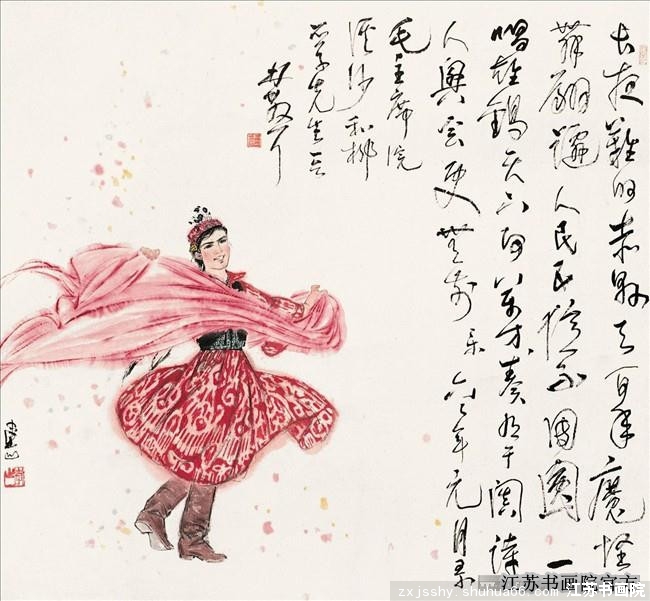 长夜難明赤縣天百年魔怪
舞翩躚人民五億不團圓一
唱雄鷄天下白萬方奏有于闐詩
人興會更無前 乐 六年元月录
毛主席浣
溪沙和柳
亚子先生
林散耳
江苏书画院官方
zxjsshy.shuhua66.com 江苏书画院